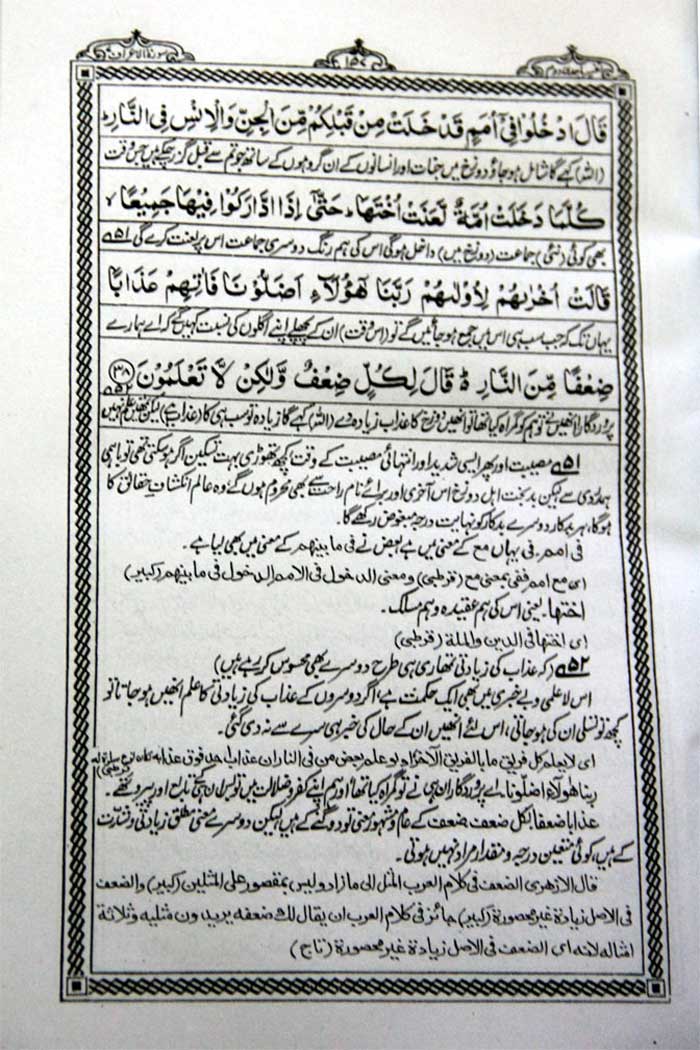 سورة الاعراف
١٥٤
قَالَ ادْخُلُوْا فِیْۤ اُمَمٍ قَدْ خَلَتْ مِنْ قَبْلِكُمْ مِّنَ الْجِنِّ وَالْاِنْسِ فِی النَّارِ ؕ
(اللہ) کہے گا شامل ہو جاؤ دوزخ میں جنات اور انسانوں کے ان گروہوں کے ساتھ جو تم سے قبل گزر چکے ہیں جس وقت
كُلَّمَا دَخَلَتْ اُمَّةٌ لَّعَنَتْ اُخْتَهَا ؕ حَتّٰۤی اِذَا ادَّارَكُوْا فِیْهَا جَمِیْعًا ۙ
بھی کوئی (نئی) جماعت (دوزخ میں) داخل ہو گی اس کی ہم رنگ دوسری جماعت اس پر لعنت کرے گی ۵۱
قَالَتْ اُخْرٰىهُمْ لِاُوْلٰىهُمْ رَبَّنَا هٰۤؤُلَآءِ اَضَلُّوْنَا فَاٰتِهِمْ عَذَابًا
یہاں تک کہ جب سب ہی اس میں جمع ہو جائیں گے تو (اس وقت) ان کے پچھلے اپنے اگلوں کی نسبت کہیں گے کہ اے ہمارے
ضِعْفًا مِّنَ النَّارِ ؕ۬ قَالَ لِكُلٍّ ضِعْفٌ وَّلٰكِنْ لَّا تَعْلَمُوْنَ ﴿٣٨﴾ ۵۲
پروردگار انھیں نے تو ہم کو گمراہ کیا تھا تو انھیں دوزخ کا عذاب زیادہ دے (اللہ) کہے گا زیادہ تو سب ہی کا (عذاب ہے) لیکن تمھیں علم نہیں
۵۱ مصیبت اور پھر ایسی شدید اور انتہائی مصیبت کے وقت کچھ تھوڑی بہت تسکین اگر ہو سکتی تھی تو باہمی
ہمدردی سے لیکن بدبخت اہل دوزخ اس آخری اور برائے نام راحت سے بھی محروم ہوں گے وہ عالم انکشاف حقائق کا
ہوگا، ہر بدکار دوسرے بدکار کو نہایت درجہ مبغوض رکھے گا۔
فی امم۔ فی یہاں مع کے معنی میں ہے بعض نے فی ما بینھم کے معنی میں بھی لیا ہے۔
ای مع امم ففی بمعنی مع (قرطبی) ومعنی الدخول فی الامم الدخول فی ما بینھم (کبیر)
اختھا۔ یعنی اس کی ہم عقیدہ و ہم مسلک۔
ای اختھا فی الدین والملة (قرطبی)
۵۲ (کہ عذاب کی زیادتی تمھاری ہی طرح دوسرے بھی محسوس کر رہے ہیں)
اس لاعلمی و بے خبری میں بھی ایک حکمت ہے، اگر دوسروں کے عذاب کی زیادتی کا علم انھیں ہو جاتا تو
کچھ تو تسلی ان کی ہو جاتی، اس لئے انھیں ان کے حال کی خبر ہی سرے سے نہ دی گئی۔
ای لا یعلم کل فریق ما بالفریق الآخر اذ لو علم بعض من فی النار ان عذاب احد فوق عذابه کان نوع سلوة له (قرطبی)
ربنا ھؤلاء اضلونا۔ اے پروردگار ان ہی نے تو گمراہ کیا تھا اور ہم اپنے کفر و ضلالت میں تو بس ان ہی کے تابع اور پیرو تھے۔
عذابا ضعفا۔ لکل ضعف۔ ضعف کے عام و مشہور معنی تو دو گنے کے ہیں لیکن دوسرے معنی مطلق زیادتی و شدت
کے ہیں، کوئی متعین درجہ و مقدار مراد نہیں ہوتی۔
قال الازھری الضعف فی کلام العرب المثل الی ما زاد ولیس بمقصور علی المثلین (کبیر) والضعف
فی الاصل زیادة غیر محصورة (کبیر) جائز فی کلام العرب ان یقال لك ضعفه یریدون مثلیه وثلاثة
امثاله لانه ای الضعف فی الاصل زیادة غیر محصورة (تاج)